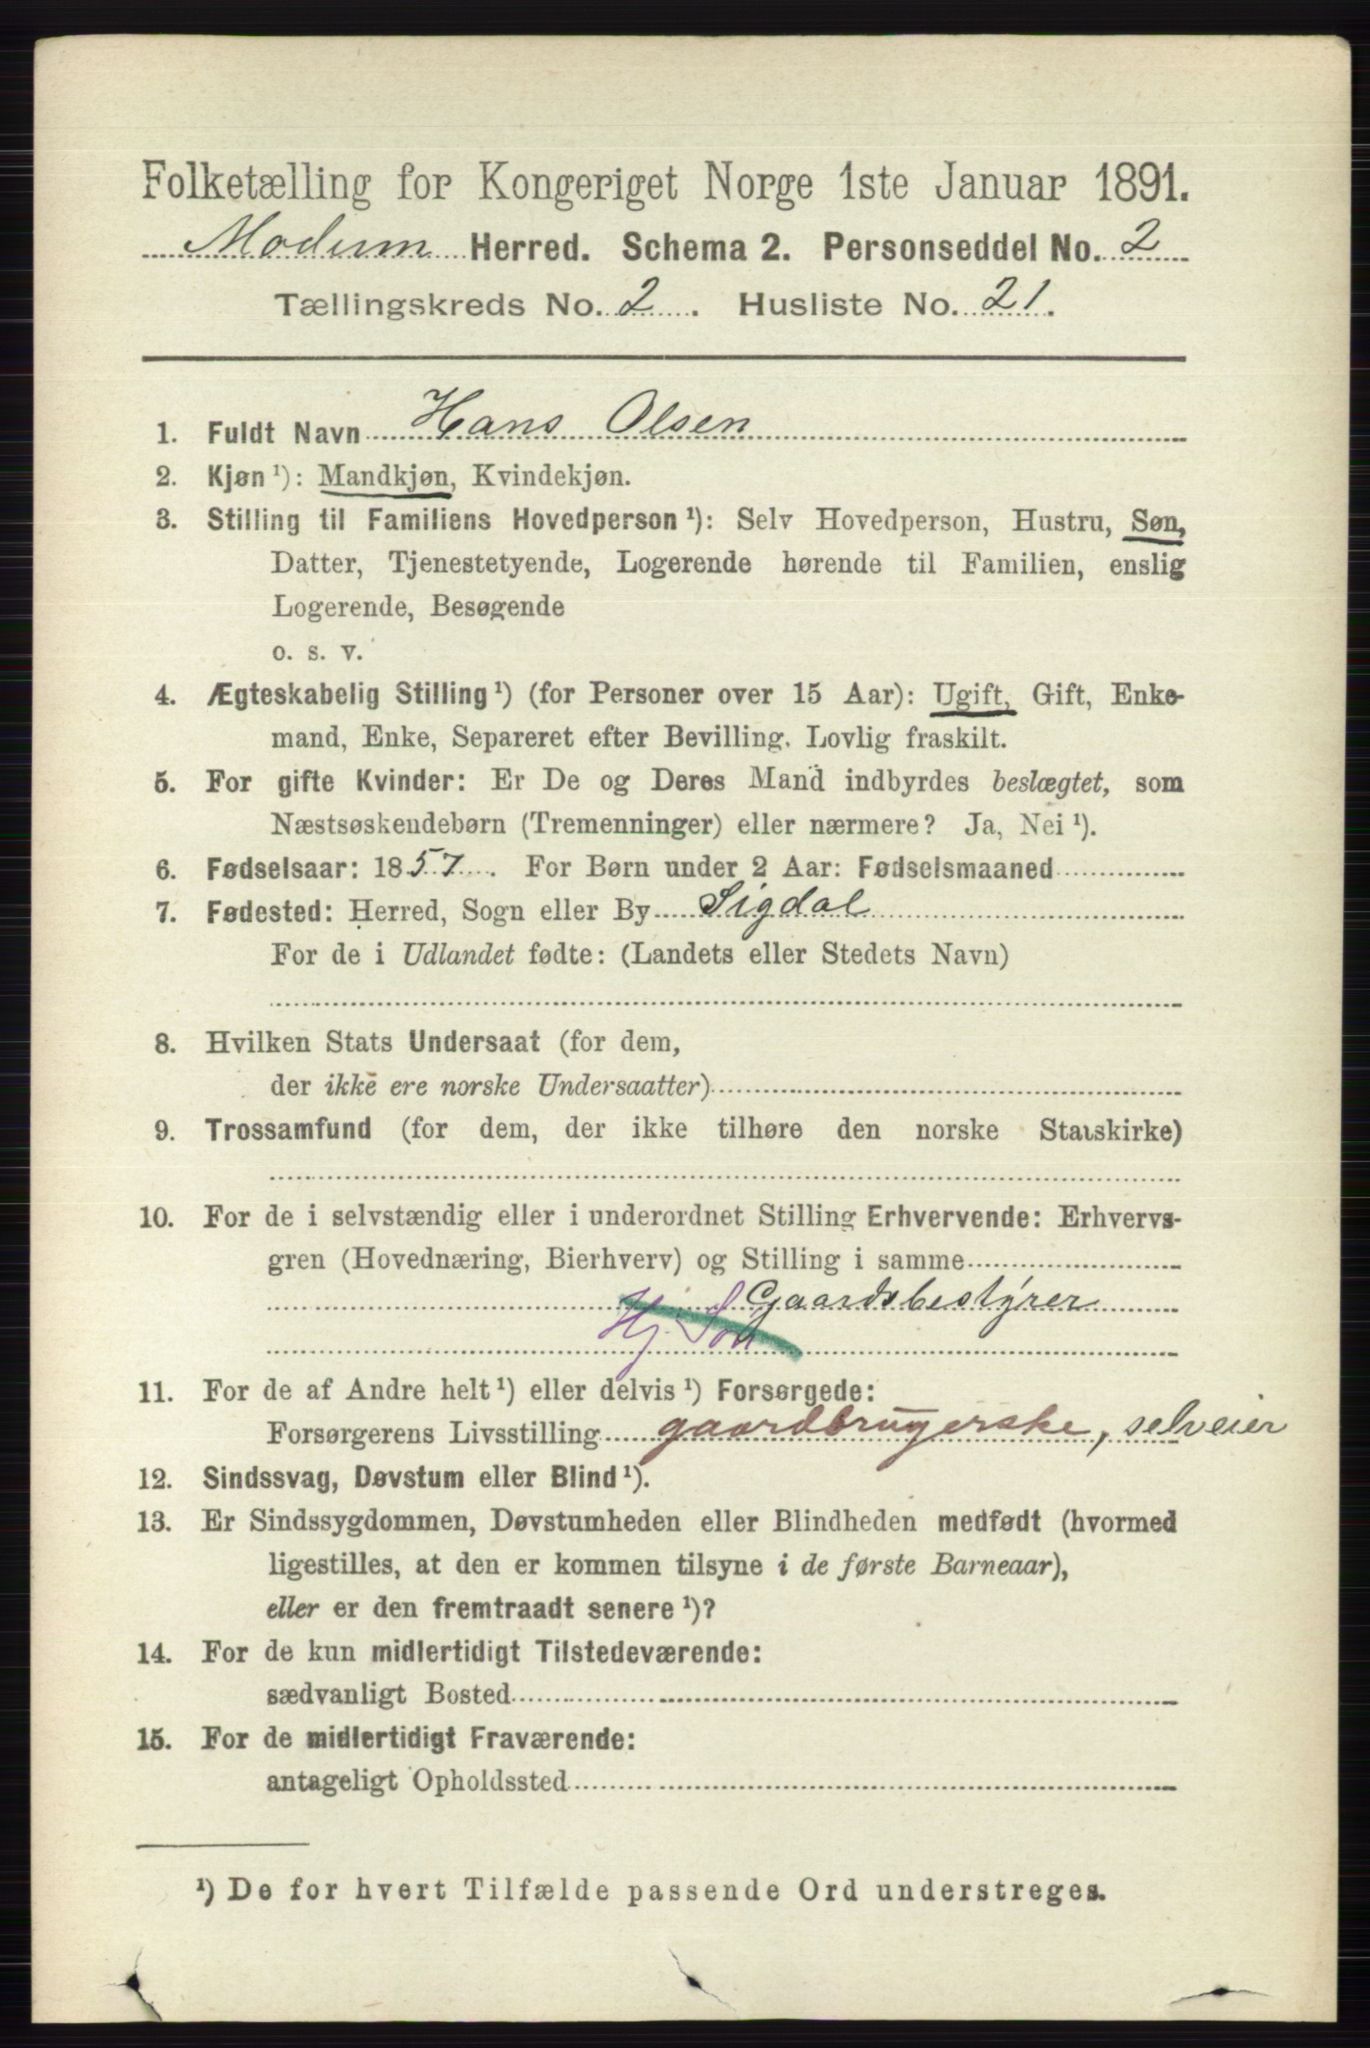 Folketælling for Kongeriget Norge 1ste Januar 1891.
Modum Herred. Schema 2. Personseddel No. 2
Tællingskreds No. 2. Husliste No. 21.
1. Fuldt Navn Hans Olsen
2. Kjøn ¹): Mandkjøn, Kvindekjøn.
3. Stilling til Familiens Hovedperson ¹): Selv Hovedperson, Hustru, Søn,
Datter, Tjenestetyende, Logerende hørende til Familien, enslig
Logerende, Besøgende
o. s. v.
4. Ægteskabelig Stilling ¹) (for Personer over 15 Aar): Ugift, Gift, Enke-
mand, Enke, Separeret efter Bevilling. Lovlig fraskilt.
5. For gifte Kvinder: Er De og Deres Mand indbyrdes beslægtet, som
Næstsøskendebørn (Tremenninger) eller nærmere? Ja, Nei ¹).
6. Fødselsaar: 1857. For Børn under 2 Aar: Fødselsmaaned
7. Fødested: Herred, Sogn eller By Sigdal
For de i Udlandet fødte: (Landets eller Stedets Navn)
8. Hvilken Stats Undersaat (for dem,
der ikke ere norske Undersaatter)
9. Trossamfund (for dem, der ikke tilhøre den norske Statskirke)
10. For de i selvstændig eller i underordnet Stilling Erhvervende: Erhvervs-
gren (Hovednæring, Bierhverv) og Stilling i samme
Gaardsbestyrer
Hj. Søn
11. For de af Andre helt ¹) eller delvis ¹) Forsørgede:
Forsørgerens Livsstilling gaardbrugerske, selveier
12. Sindssvag, Døvstum eller Blind ¹).
13. Er Sindssygdommen, Døvstumheden eller Blindheden medfødt (hvormed
ligestilles, at den er kommen tilsyne i de første Barneaar),
eller er den fremtraadt senere ¹)?
14. For de kun midlertidigt Tilstedeværende:
sædvanligt Bosted
15. For de midlertidigt Fraværende:
antageligt Opholdssted
¹) De for hvert Tilfælde passende Ord understreges.